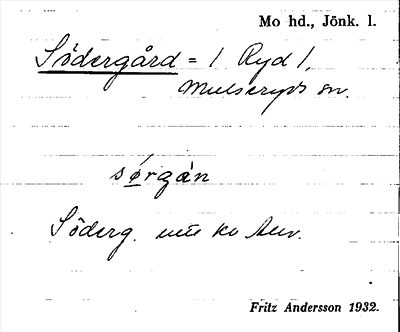 Mo hd., Jönk. l.
Södergård = 1 Ryd 1,
Mulseryds sn.
sǿrgàn
Söderg.
Fritz Andersson 1932.